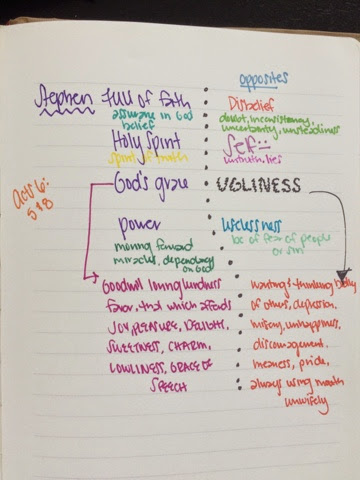 opposites
Stephen full of faith
Disbelief
assurance in God
belief
doubt, inconsistency,
uncertainty, unsteadiness
Holy Spirit
Self
spirit of truth
untruth, lies
Acts 6:
5 & 8
God's grace
UGLINESS
power
Uselessness
moving forward
miracles, dependency
on God
bc of fear of people
or sin
Goodwill loving kindness
favor, that which affords
joy, pleasure, delight,
sweetness, charm,
lowliness, grace of
speech
wanting + thinking badly
of others, depression,
unhappiness,
discouragement.
meanness, pride,
always using mouth
unwisely